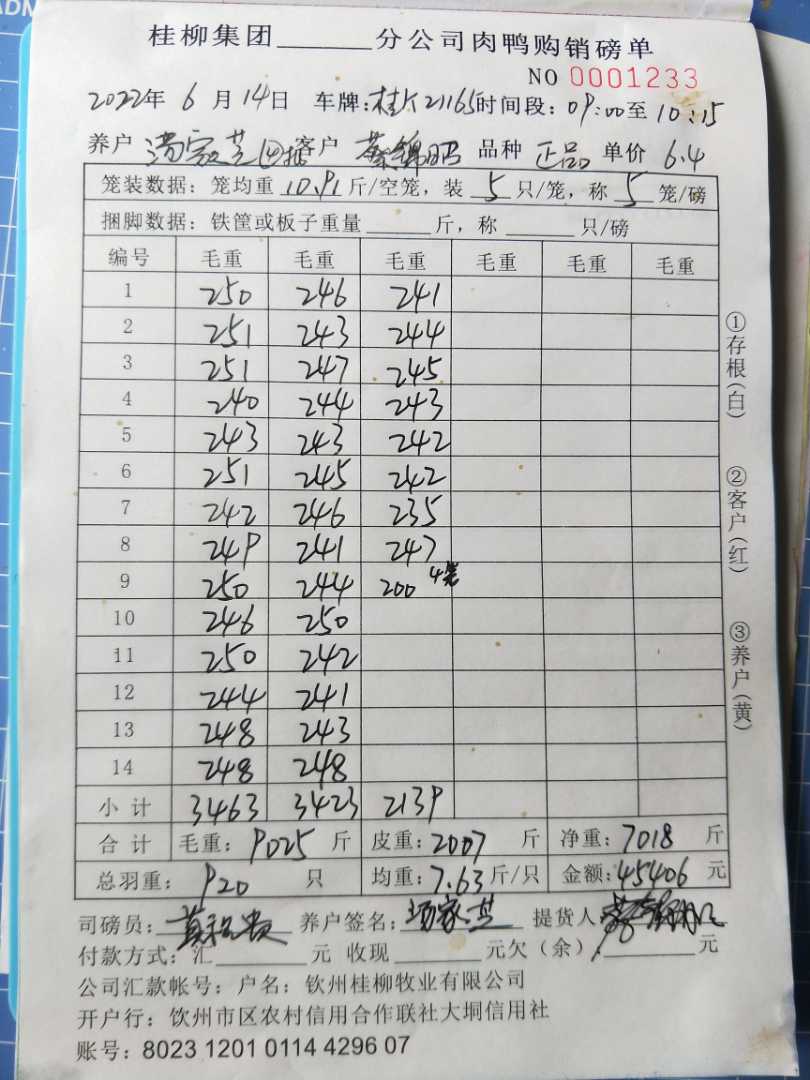 桂柳集团______分公司肉鸭购销磅单
NO 0001233
2022年 6 月 14日 车牌:桂K21165时间段:09:00至10:15
养户 汤家芝 客户 蔡锦昭 品种 正品 单价 6.4
笼装数据:笼均重 10.91 斤/空笼,装 5 只/笼,称 5 笼/磅
捆脚数据:铁筐或板子重量______斤,称______只/磅
编号 毛重 毛重 毛重 毛重 毛重 毛重
1 250 246 241
2 251 243 244
3 251 247 245
4 240 244 243
5 243 243 242
6 251 245 242
7 242 246 235
8 249 241 247
9 250 244 200 4笼
10 246 250
11 250 242
12 244 241
13 248 243
14 248 248
小计 3463 3423 2139
合计 毛重:9025 斤 皮重:2007 斤 净重:7018 斤
总羽重: 920 只 均重:7.63斤/只 金额:45406 元
司磅员: 养户签名:汤家芝 提货人
付款方式:汇______元 收现______元欠(余)______元
公司汇款帐号:户名:钦州桂柳牧业有限公司
开户行:钦州市区农村信用合作联社大垌信用社
账号:8023 1201 0114 4296 07
①存根(白)
②客户(红)
③养户(黄)